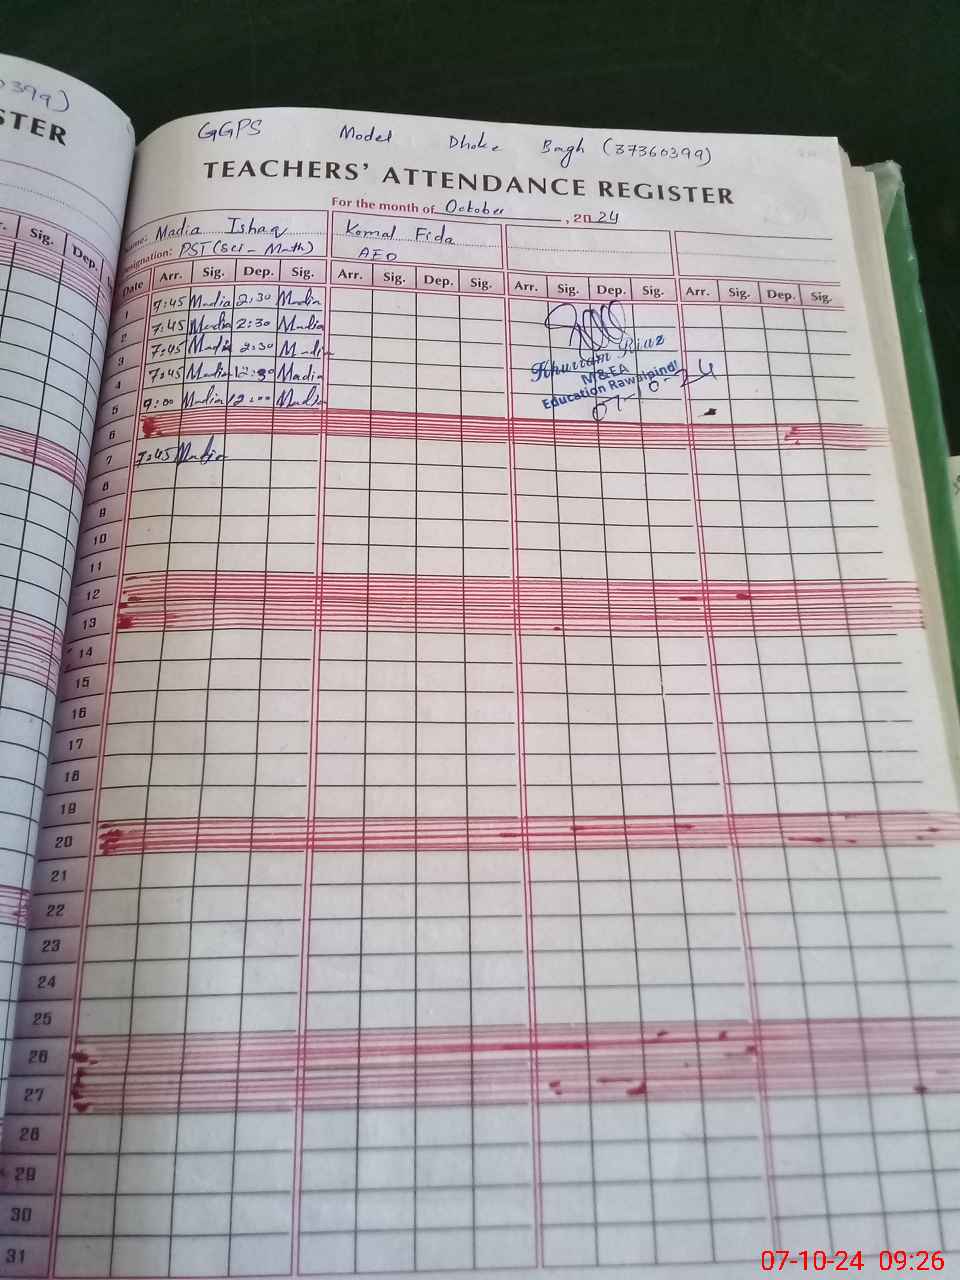 0399)
STER
GGPS Model Dhoke Bagh (37360399)
TEACHERS' ATTENDANCE REGISTER
For the month of October, 2024
Name: Madia Ishaq Komal Fida
Designation: PST (Sci - Math) AEO
Sig. Dep.
Date Arr. Sig. Dep. Sig. Arr. Sig. Dep. Sig. Arr. Sig. Dep. Sig. Arr. Sig. Dep. Sig.
7:45 Madia 2:30 Madia
2 7:45 Madia 2:30 Madia
3 7:45 Madia 2:30 Madia
4 7:45 Madia 12:30 Madia
5 9:00 Madia 12:00 Madia
Khurram Riaz
M&EA
Education Rawalpindi
07-10-24
6
7 7:45 Madia
8
9
10
11
12
13
14
15
16
17
18
19
20
21
22
23
24
25
26
27
28
29
30
31
07-10-24 09:26